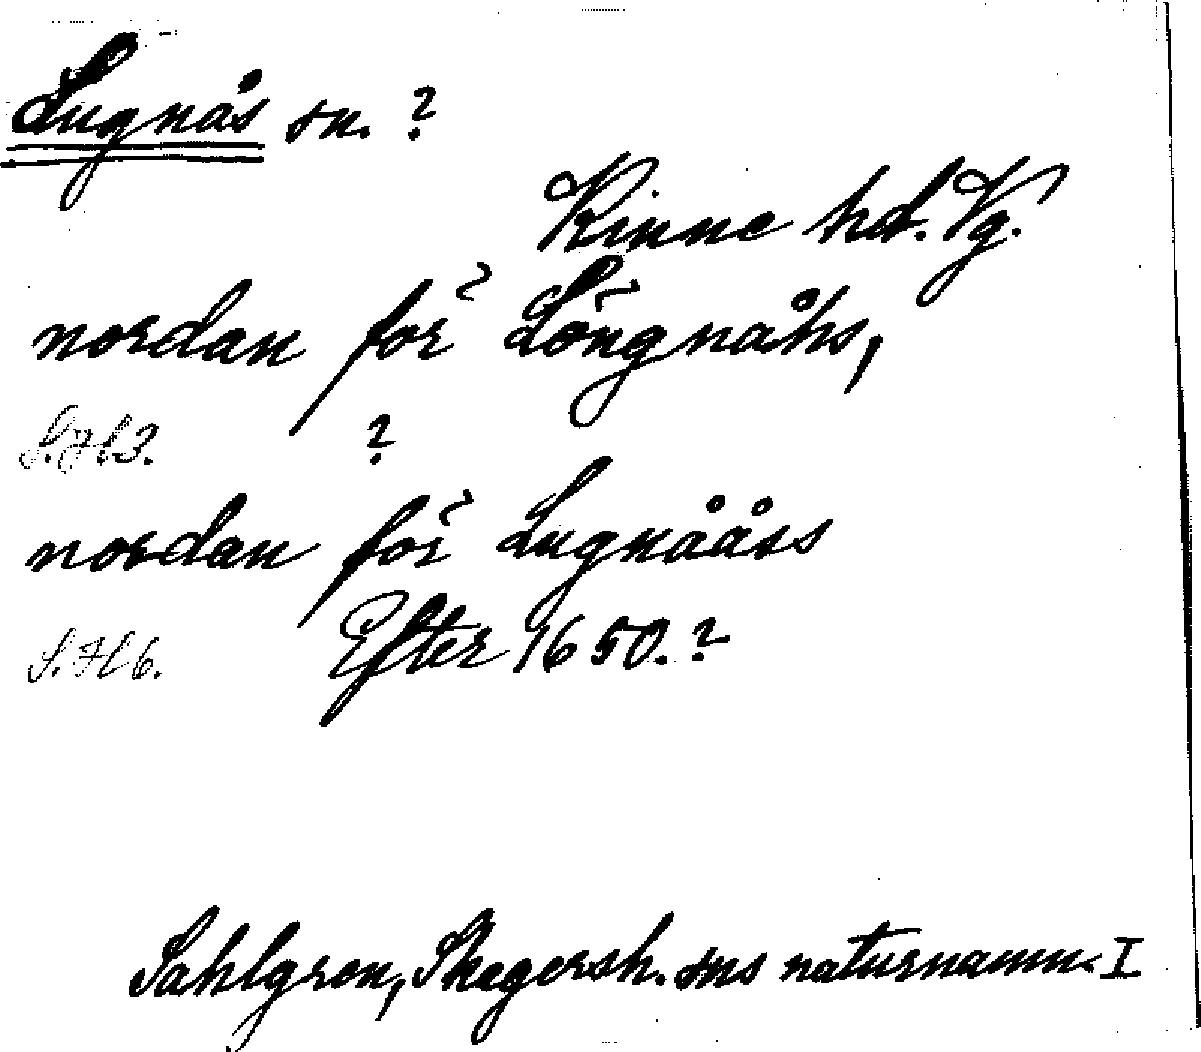 Lugnås sn. ?
Kinne hd. Vg.
nordan för Löngnåhs,
S.H3. ?
nordan för Lugnååss
S.H6. Efter 1650.?
Sahlgren, Skagersh. sns naturnamn. I